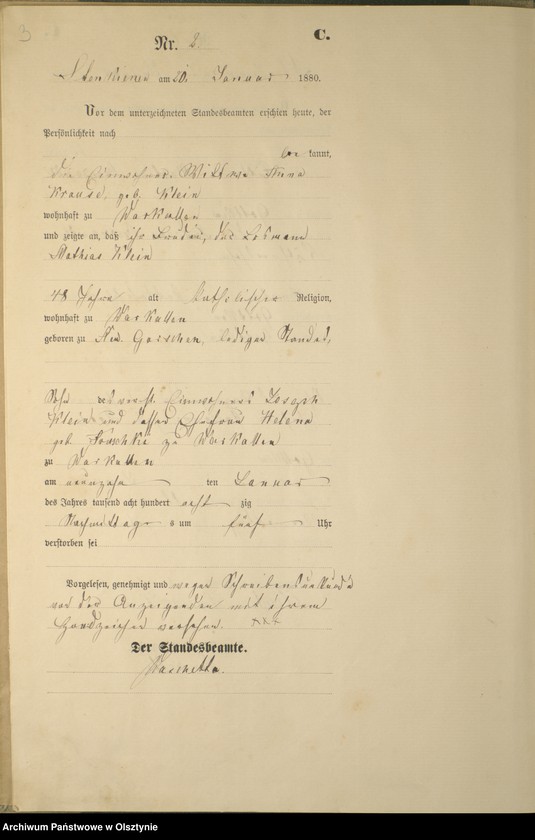 3
C.
Nr. 2.
am 20. Januar 1880.
Vor dem unterzeichneten Standesbeamten erschien heute, der
Persönlichkeit nach
be kannt,
die Einwohner-Wittwe Anna
Krause, geb. Klein
wohnhaft zu Warkallen
und zeigte an, daß ihr Bruder, der Losmann
Mathias Klein
48 Jahre alt katholischer Religion,
wohnhaft zu Warkallen
geboren zu ledigen Standes,
Sohn des verst. Einwohners Joseph
Klein und dessen Ehefrau Helena
geb. zu Warkallen
zu Warkallen
am neunzehn ten Januar
des Jahres tausend acht hundert acht zig
Nachmittag s um fünf Uhr
verstorben sei
Vorgelesen, genehmigt und wegen Schreibensunkunde
von der Anzeigenden mit ihrem
Handzeichen versehen. xxx
Der Standesbeamte.
Archiwum Państwowe w Olsztynie